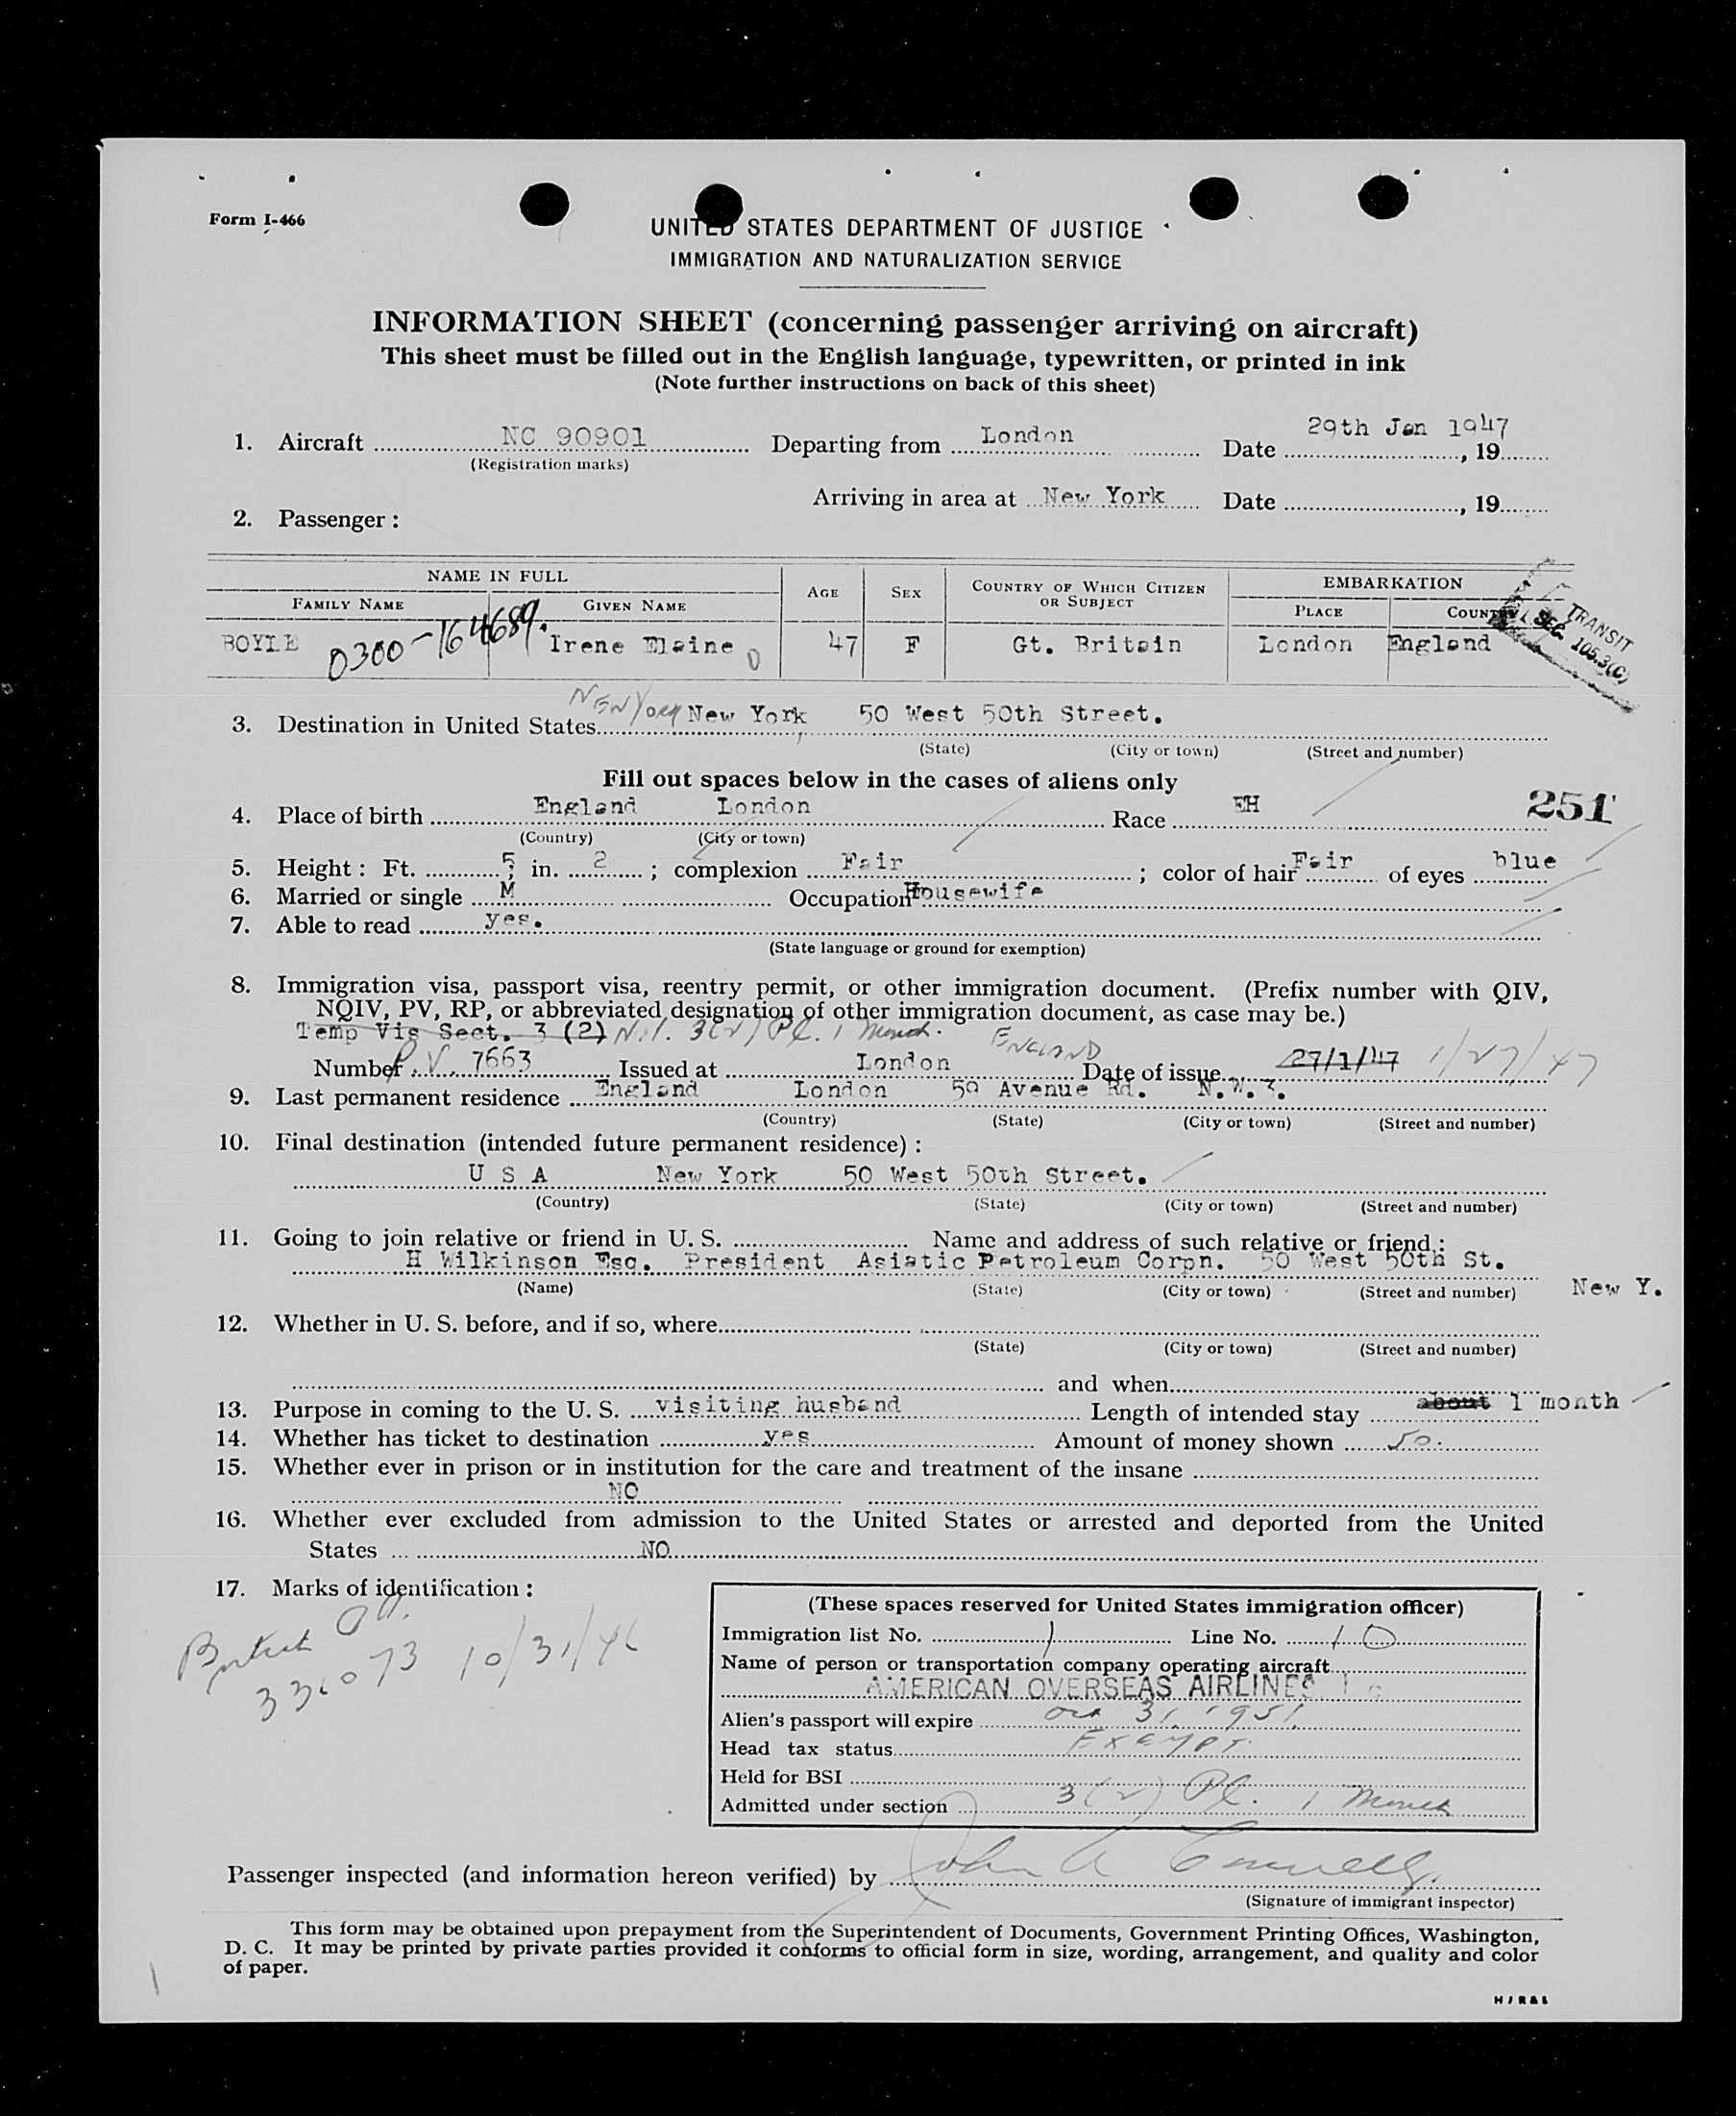 Form I-466
UNITED STATES DEPARTMENT OF JUSTICE
IMMIGRATION AND NATURALIZATION SERVICE
INFORMATION SHEET (concerning passenger arriving on aircraft)
This sheet must be filled out in the English language, typewritten, or printed in ink
(Note further instructions on back of this sheet)
1. Aircraft NC 90901 Departing from London Date 29th Jan 1947, 19
(Registration marks)
Arriving in area at New York Date , 19
2. Passenger :
NAME IN FULL AGE SEX COUNTRY OF WHICH CITIZEN OR SUBJECT EMBARKATION
FAMILY NAME GIVEN NAME PLACE COUNTRY
TRANSIT
SEC. 105.3(C)
BOYLE 0300-164689. Irene Elaine 47 F Gt. Britain London England
3. Destination in United States NEW YORK New York 50 West 50th Street.
(State) (City or town) (Street and number)
Fill out spaces below in the cases of aliens only
4. Place of birth England London Race EH 251
(Country) (City or town)
5. Height : Ft. 5; in. 2 ; complexion Fair ; color of hair Fair of eyes blue
6. Married or single M Occupation Housewife
7. Able to read yes.
(State language or ground for exemption)
8. Immigration visa, passport visa, reentry permit, or other immigration document. (Prefix number with QIV,
NQIV, PV, RP, or abbreviated designation of other immigration document, as case may be.)
Temp Vis Sect. 3 (2) N.I. 3(2) Pl. 1 Month. ENGLAND
Number P.V. 7663 Issued at London Date of issue 27/1/47 1/27/47
9. Last permanent residence England London 59 Avenue Rd. N.W.3.
(Country) (State) (City or town) (Street and number)
10. Final destination (intended future permanent residence) :
U S A New York 50 West 50th Street.
(Country) (State) (City or town) (Street and number)
11. Going to join relative or friend in U. S. Name and address of such relative or friend :
H Wilkinson Esq. President Asiatic Petroleum Corpn. 50 West 50th St.
New Y.
(Name) (State) (City or town) (Street and number)
12. Whether in U. S. before, and if so, where
(State) (City or town) (Street and number)
and when
13. Purpose in coming to the U. S. visiting husband Length of intended stay about 1 month
14. Whether has ticket to destination yes Amount of money shown 50.
15. Whether ever in prison or in institution for the care and treatment of the insane
NO
16. Whether ever excluded from admission to the United States or arrested and deported from the United
States NO
17. Marks of identification :
British
336073 10/31/46
(These spaces reserved for United States immigration officer)
Immigration list No. 1 Line No. 10
Name of person or transportation company operating aircraft
AMERICAN OVERSEAS AIRLINES
Alien's passport will expire Oct 31, 1951.
Head tax status EXEMPT
Held for BSI
Admitted under section 3(2) Pl. 1 Month
Passenger inspected (and information hereon verified) by John A Connelly.
(Signature of immigrant inspector)
This form may be obtained upon prepayment from the Superintendent of Documents, Government Printing Offices, Washington,
D. C. It may be printed by private parties provided it conforms to official form in size, wording, arrangement, and quality and color
of paper.
H/R&S